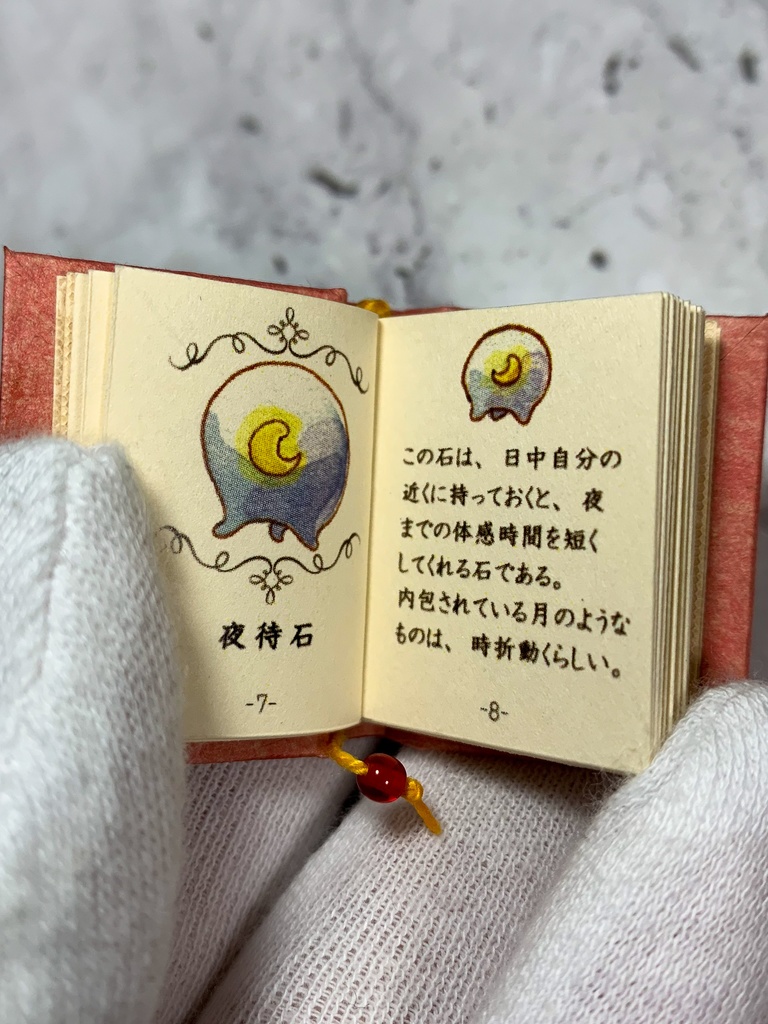 夜待石
-7-
この石は、日中自分の
近くに持っておくと、夜
までの体感時間を短く
してくれる石である。
内包されている月のような
ものは、時折動くらしい。
-8-